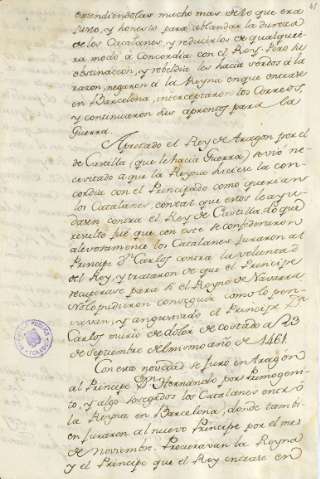 extendiendolas mucho mas de lo que era
justo, y honesto para ablandar la dureza
de los Catalanes, y reducirlos de qualquie
ra modo à Concordia con el Rey. Pero su
obstinacion, y rebeldia les hacia sordos à la
razon, negaron à la Reyna en que entrase
en Barcelona, interceptaron los Correos,
y continuaron sus aprestos para la
Guerra.
Apretado el Rey de Aragon por el
de Castilla (que le hacia Guerra) se vio ne
cesitado à que la Reyna hiciese la con
cordia con el Principado como querian
los Catalanes, con tal que estos le ayu
dasen contra el Rey de Castilla, lo que
resultó fué que con este se confederaron
alevosamente los Catalanes juraron al
Principe Dn. Carlos contra la voluntad
del Rey, y trataron de que el Principe
recuperase para si el Reyno de Navarra
No lo pudieron conseguir como lo pen
saron, y angustiado el Principe Dn.
Carlos murió de dolor de costado à 23
de Septiembre del mismo año de 1461.
Con esta novedad se juró en Aragon
al Principe Dn. Hernando por Primogeni
to, y algo sosegados los Catalanes entró
la Reyna en Barcelona, donde tambi
en juraron al nuevo Principe por el mes
de Noviembre. Procuravan la Reyna
y el Principe que el Rey entrase en